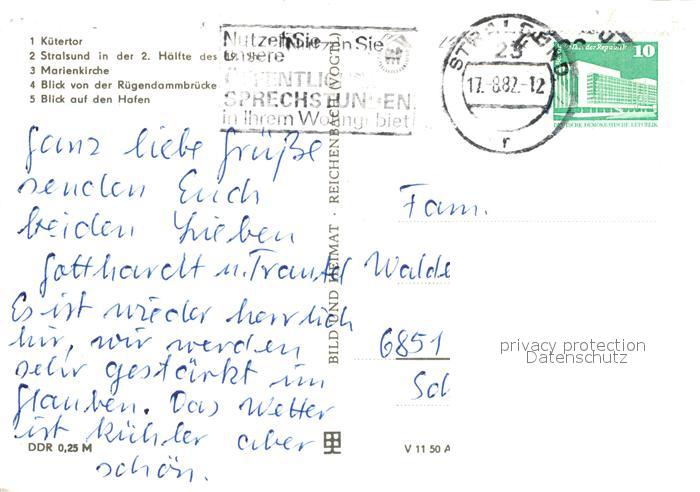 1 Kütertor
2 Stralsund in der 2. Hälfte des
3 Marienkirche
4 Blick von der Rügendammbrücke
5 Blick auf den Hafen
Nutzen Sie
unsere
ÖFFENTLICHEN
SPRECHSTUNDEN
in Ihrem Wohngebiet
STRALSUND
23
17.-8.82.-12
r
Palast der Republik
10
DEUTSCHE DEMOKRATISCHE REPUBLIK
Ganz liebe Grüße
senden Euch
beiden Lieben
Gotthardt u. Trautel
Es ist wieder herrlich
hier, wir werden
sehr gestärkt im
Glauben. Das Wetter
ist kühler aber
schön.
BILD UND HEIMAT · REICHENBACH (VOGTL)
Fam.
Walde
6851
Sch
privacy protection
Datenschutz
DDR 0,25 M
V 11 50 A